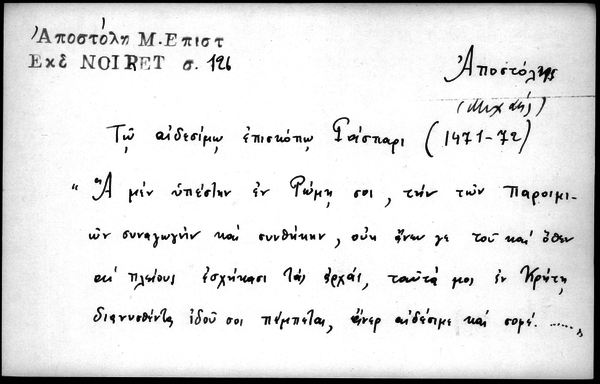 Ἀποστόλη Μ. Επιστ
Εκδ NOIRET σ. 126
Ἀποστόλης
(Μιχαήλ)
Τῷ αἰδεσίμῳ ἐπισκόπῳ Γάσπαρι (1471-72)
"Ἃ μὲν ὑπέστην ἐν Ῥώμῃ σοι, τὴν τῶν παροιμι-
ῶν συναγωγὴν καὶ συνθήκην, οὐκ ἄνευ γε τοῦ καὶ ὅθεν
αἱ πλείους ἐσχήκασι τὰς ἀρχάς, ταῦτά μοι ἐν Κρήτῃ
διανυσθέντα ἰδού σοι πέμπεται, ἄνερ αἰδέσιμε καὶ σοφέ. ......."